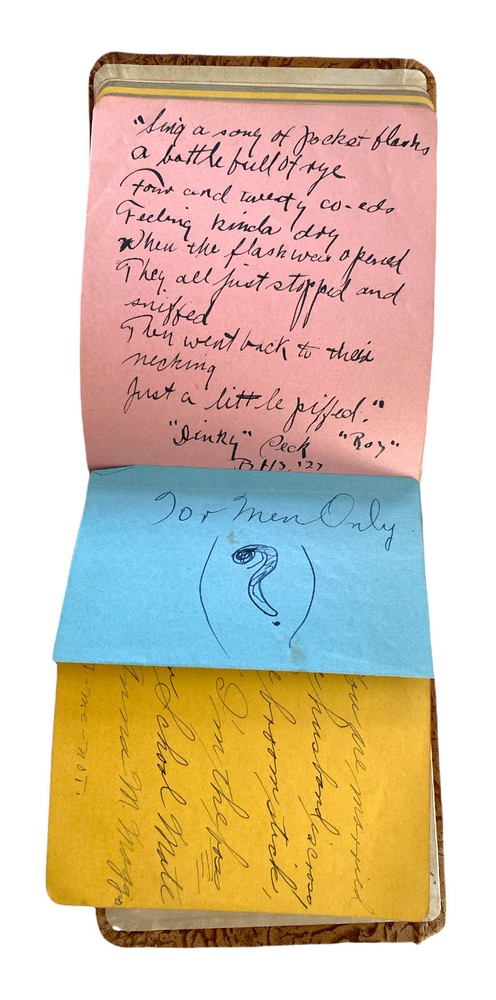 "Sing a song of pocket flasks
a bottle full of rye
Four and twenty co-eds
Feeling kinda dry
When the flask was opened
They all just stopped and
sniffed
Then went back to their
necking
Just a little piffed."
"Dinky" Peck "Roy"
For Men Only
?
you are married
husband across
broomstick,
"I'm the boss
School Mate
M.